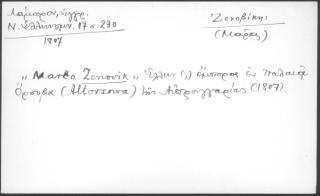 Λάμπρου, έγγρ.
Ν. Ελληνομν. 17 σ. 230
1807
Ζενοβίκης
(Μάρκος)
„Marco Zenovik" Έλλην (;) έμπορος εν Παλαιά
Όρσοβα (Altorsova) της Αυστρουγγαρίας (1807).